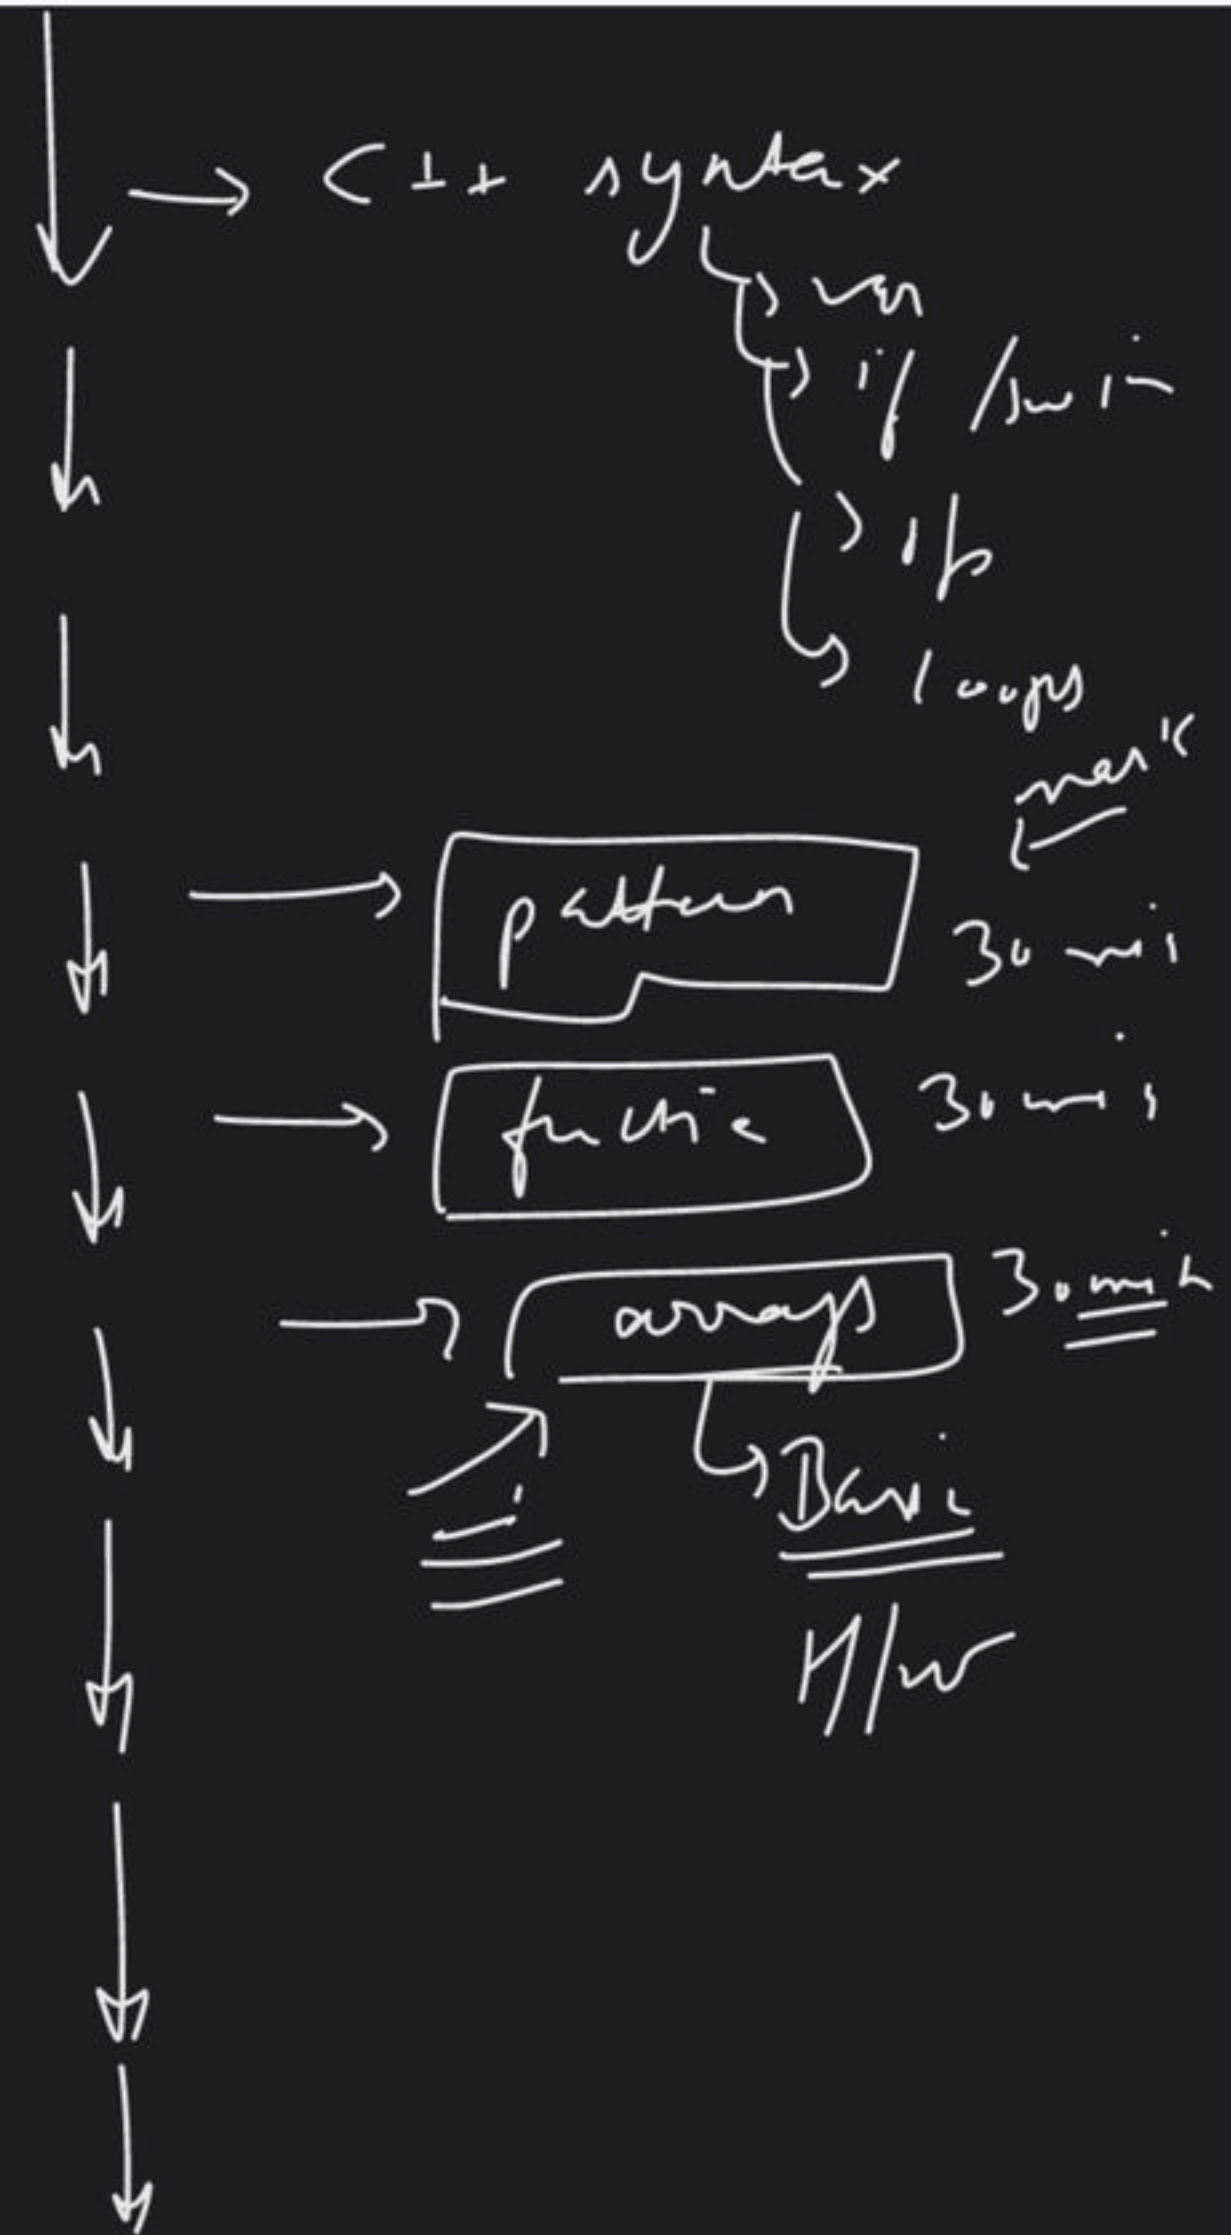 C++ syntax
var
if /swi
i/p
loops
mark
pattern
30 min
functio
30 min
arrays
30 min
Basic
H/W